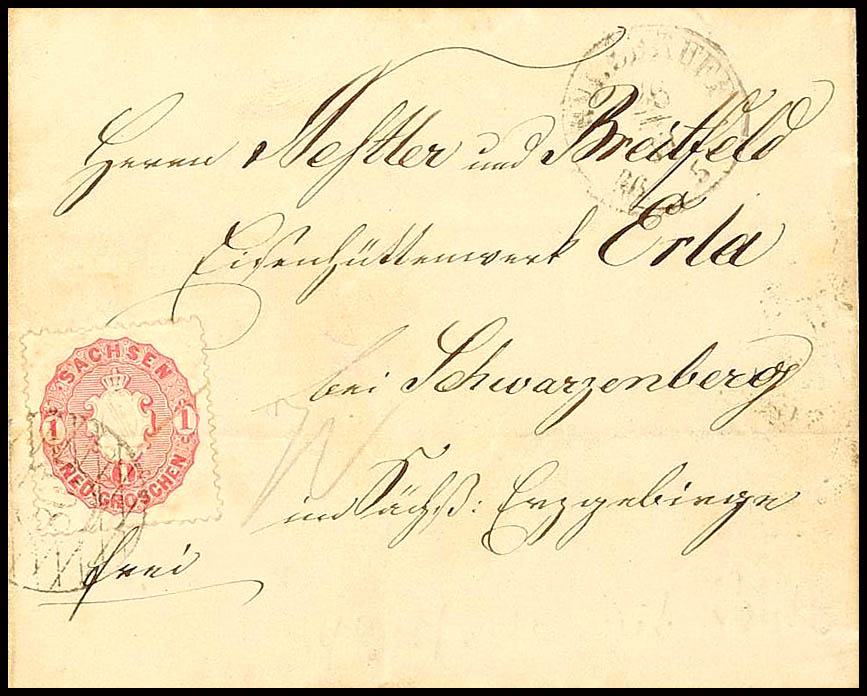 Herrn Nestler und Breitfeld
Eisenhüttenwerk Erla
bei Schwarzenberg
im Sächß: Erzgebirge
frei
SACHSEN
1 1
NEU-GROSCHEN